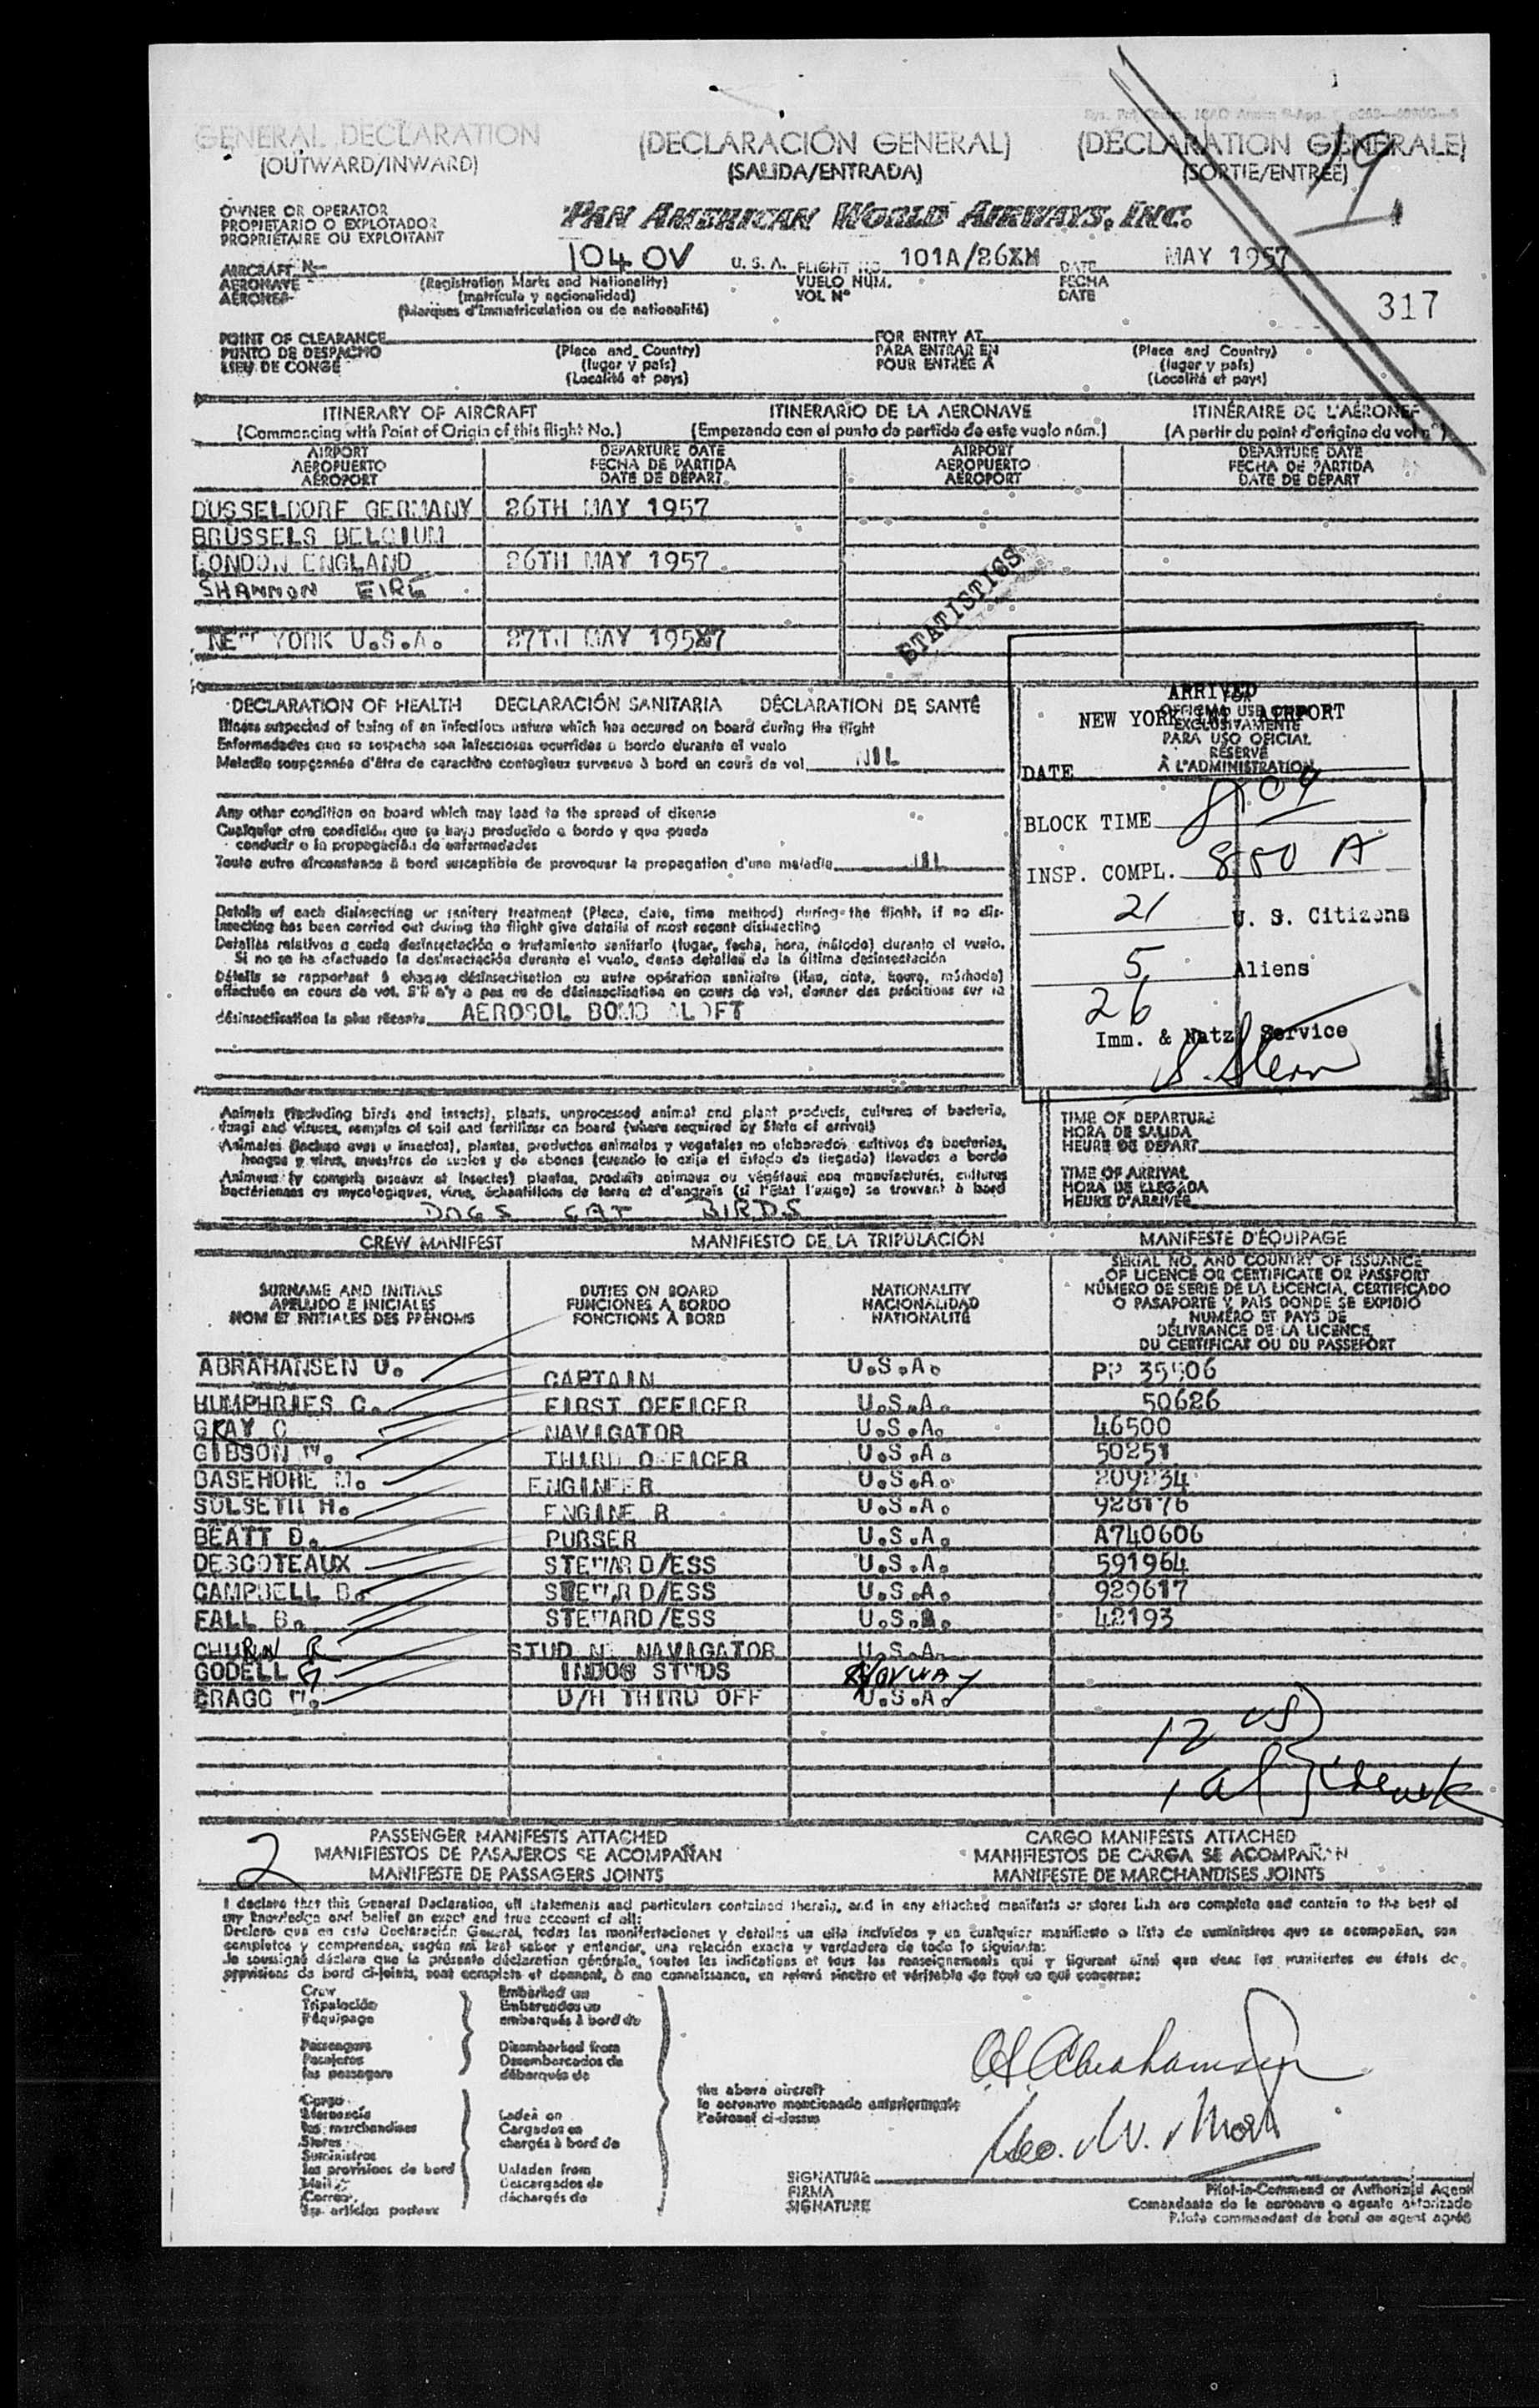 GENERAL DECLARATION (DECLARACIÓN GENERAL) (DÉCLARATION GÉNÉRALE)
(OUTWARD/INWARD) (SALIDA/ENTRADA) (SORTIE/ENTRÉE)
19
OWNER OR OPERATOR
PROPIETARIO O EXPLOTADOR
PROPRIÉTAIRE OU EXPLOITANT
PAN AMERICAN WORLD AIRWAYS, INC.
AIRCRAFT N 1040V U.S.A. FLIGHT NO. 101A/26XX DATE MAY 1957
AERONAVE (Registration Marks and Nationality) VUELO NÚM. FECHA
AÉRONEF (matrícula y nacionalidad) VOL Nº DATE
(Marques d'Immatriculation ou de nationalité)
317
POINT OF CLEARANCE FOR ENTRY AT
PUNTO DE DESPACHO (Place and Country) PARA ENTRAR EN (Place and Country)
LIEU DE CONGÉ (lugar y país) POUR ENTRÉE À (lugar y país)
(Localité et pays) (Localité et pays)
ITINERARY OF AIRCRAFT ITINERARIO DE LA AERONAVE ITINÉRAIRE DE L'AÉRONEF
(Commencing with Point of Origin of this flight No.) (Empezando con el punto de partida de este vuelo núm.) (A partir du point d'origine du vol nº)
AIRPORT DEPARTURE DATE AIRPORT DEPARTURE DATE
AEROPUERTO FECHA DE PARTIDA AEROPUERTO FECHA DE PARTIDA
AÉROPORT DATE DE DÉPART AÉROPORT DATE DE DÉPART
DUSSELDORF GERMANY 26TH MAY 1957
BRUSSELS BELGIUM
LONDON ENGLAND 26TH MAY 1957
SHANNON EIRE
NEW YORK U.S.A. 27TH MAY 19587
STATISTICS
DECLARATION OF HEALTH DECLARACIÓN SANITARIA DÉCLARATION DE SANTÉ
Illness suspected of being of an infectious nature which has occured on board during the flight
Enfermedades que se sospecha son infecciosas ocurridas a bordo durante el vuelo
Maladie soupçonnée d'être de caractère contagieux survenue à bord en cours de vol NIL
Any other condition on board which may lead to the spread of disease
Cualquier otra condición que se haya producido a bordo y que pueda
conducir a la propagación de enfermedades
Toute autre circonstance à bord susceptible de provoquer la propagation d'une maladie
Details of each disinsecting or sanitary treatment (Place, date, time method) during the flight, if no dis-
insecting has been carried out during the flight give details of most recent disinsecting
Detalles relativos a cada desinsectación o tratamiento sanitario (lugar, fecha, hora, método) durante el vuelo.
Si no se ha efectuado la desinsectación durante el vuelo, dense detalles de la última desinsectación
Détails se rapportant à chaque désinsectisation ou autre opération sanitaire (lieu, date, heure, méthode)
effectuée en cours de vol. S'il n'y a pas eu de désinsectisation en cours de vol, donner des précisions sur la
désinsectisation la plus récente AEROSOL BOMB ALOFT
FOR
OFFICIAL USE ONLY
EXCLUSIVAMENTE
PARA USO OFICIAL
RÉSERVÉ
À L'ADMINISTRATION
ARRIVED
NEW YORK INT. AIRPORT
DATE
BLOCK TIME 8 04
INSP. COMPL. 850 A
21 U. S. Citizens
5 Aliens
26
Imm. & Natz. Service
S. Stern
Animals (including birds and insects), plants, unprocessed animal and plant products, cultures of bacteria,
fungi and viruses, samples of soil and fertilizer on board (where required by State of arrival)
Animales (incluso aves e insectos), plantas, productos animales y vegetales no elaborados, cultivos de bacterias,
hongos y virus, muestras de suelos y de abonos (cuando lo exija el Estado de llegada) llevados a bordo
Animaux (y compris oiseaux et insectes) plantes, produits animaux ou végétaux non manufacturés, cultures
bactériennes ou mycologiques, virus, échantillons de terre et d'engrais (si l'État l'exige) se trouvant à bord
DOGS CAT BIRDS
TIME OF DEPARTURE
HORA DE SALIDA
HEURE DE DÉPART
TIME OF ARRIVAL
HORA DE LLEGADA
HEURE D'ARRIVÉE
CREW MANIFEST MANIFIESTO DE LA TRIPULACIÓN MANIFESTE D'ÉQUIPAGE
SURNAME AND INITIALS DUTIES ON BOARD NATIONALITY
APELLIDO E INICIALES FUNCIONES A BORDO NACIONALIDAD
NOM ET INITIALES DES PRÉNOMS FONCTIONS À BORD NATIONALITÉ
SERIAL NO. AND COUNTRY OF ISSUANCE
OF LICENCE OR CERTIFICATE OR PASSPORT
NÚMERO DE SERIE DE LA LICENCIA, CERTIFICADO
O PASAPORTE Y PAÍS DONDE SE EXPIDIÓ
NUMÉRO ET PAYS DE
DÉLIVRANCE DE LA LICENCE,
DU CERTIFICAT OU DU PASSEPORT
ABRAHANSEN O. CAPTAIN U.S.A. PP 35506
HUMPHRIES C. FIRST OFFICER U.S.A. 50626
GRAY C NAVIGATOR U.S.A. 46500
GIBSON W. THIRD OFFICER U.S.A. 50251
BASEHORE M. ENGINEER U.S.A. 209234
SOLSETH H. ENGINEER U.S.A. 928176
BEATT D. PURSER U.S.A. A740606
DESCOTEAUX STEWARD/ESS U.S.A. 591964
CAMPBELL B. STEWARD/ESS U.S.A. 929617
FALL B. STEWARD/ESS U.S.A. 42193
CHURN R STUDENT NAVIGATOR U.S.A.
GODELL G INDOS STUDS NORWAY
CRAGG W. D/H THIRD OFF U.S.A.
12 US
1 al
2
PASSENGER MANIFESTS ATTACHED CARGO MANIFESTS ATTACHED
MANIFIESTOS DE PASAJEROS SE ACOMPAÑAN MANIFIESTOS DE CARGA SE ACOMPAÑAN
MANIFESTE DE PASSAGERS JOINTS MANIFESTE DE MARCHANDISES JOINTS
I declare that this General Declaration, all statements and particulars contained therein, and in any attached manifests or stores lists are complete and contain to the best of
my knowledge and belief an exact and true account of all:
Declaro que en esta Declaración General, todas las manifestaciones y detalles en ella incluidos y en cualquier manifiesto o lista de suministros que se acompañan, son
completos y comprenden, según mi leal saber y entender, una relación exacta y verdadera de todo lo siguiente:
Je soussigné déclare que la présente déclaration générale, toutes les indications et tous les renseignements qui y figurent ainsi que dans les manifestes ou états de
provisions de bord ci-joints, sont complets et donnent, à ma connaissance, un relevé sincère et véritable de tout ce qui concerne:
Crew Embarked on
Tripulación Embarcados en
l'équipage embarqués à bord de
Passengers Disembarked from
Pasajeros Desembarcados de
les passagers débarqués de
the above aircraft
la aeronave mencionada anteriormente
l'aéronef ci-dessus
Cargo
Mercancía Laden on
les marchandises Cargados en
Stores chargés à bord de
Suministros
les provisions de bord Unladen from
Mail Descargados de
Correo déchargés de
les articles postaux
O Abrahamsen
Geo. W.
SIGNATURE
FIRMA
SIGNATURE
Pilot-in-Command or Authorized Agent
Comandante de la aeronave o agente autorizado
Pilote commandant de bord ou agent agréé